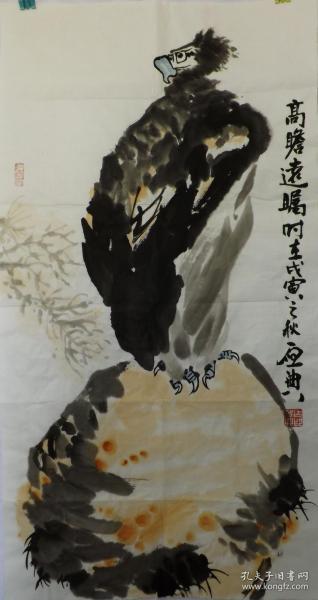 高瞻远瞩时在戊寅之秋
孔夫子旧书网
www.kongfz.com